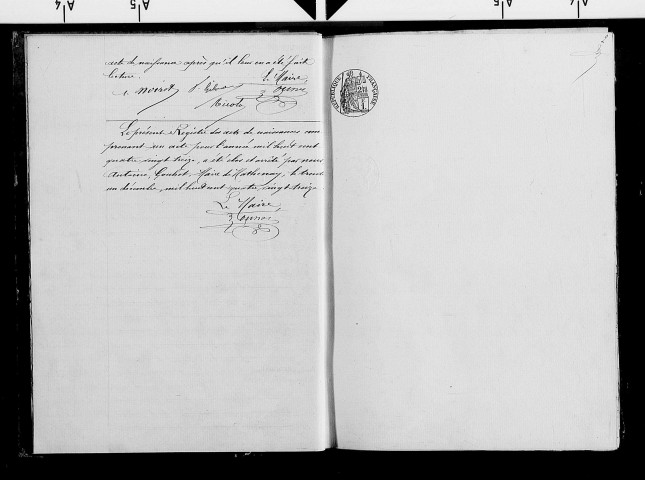 acte de naissance après qu'il leur en a été fait
lecture.
Le Maire,
noirot
Nicole
Le présent Registre des actes de naissances com
prenant un acte pour l'année mil huit cent
quatre vingt treize, a été clos et arrêté par nous
Antoine, Maire de Mathenay, le trente
un décembre, mil huit cent quatre vingt treize
Le Maire,
RÉPUBLIQUE FRANÇAISE
A4
A5
A5
A4